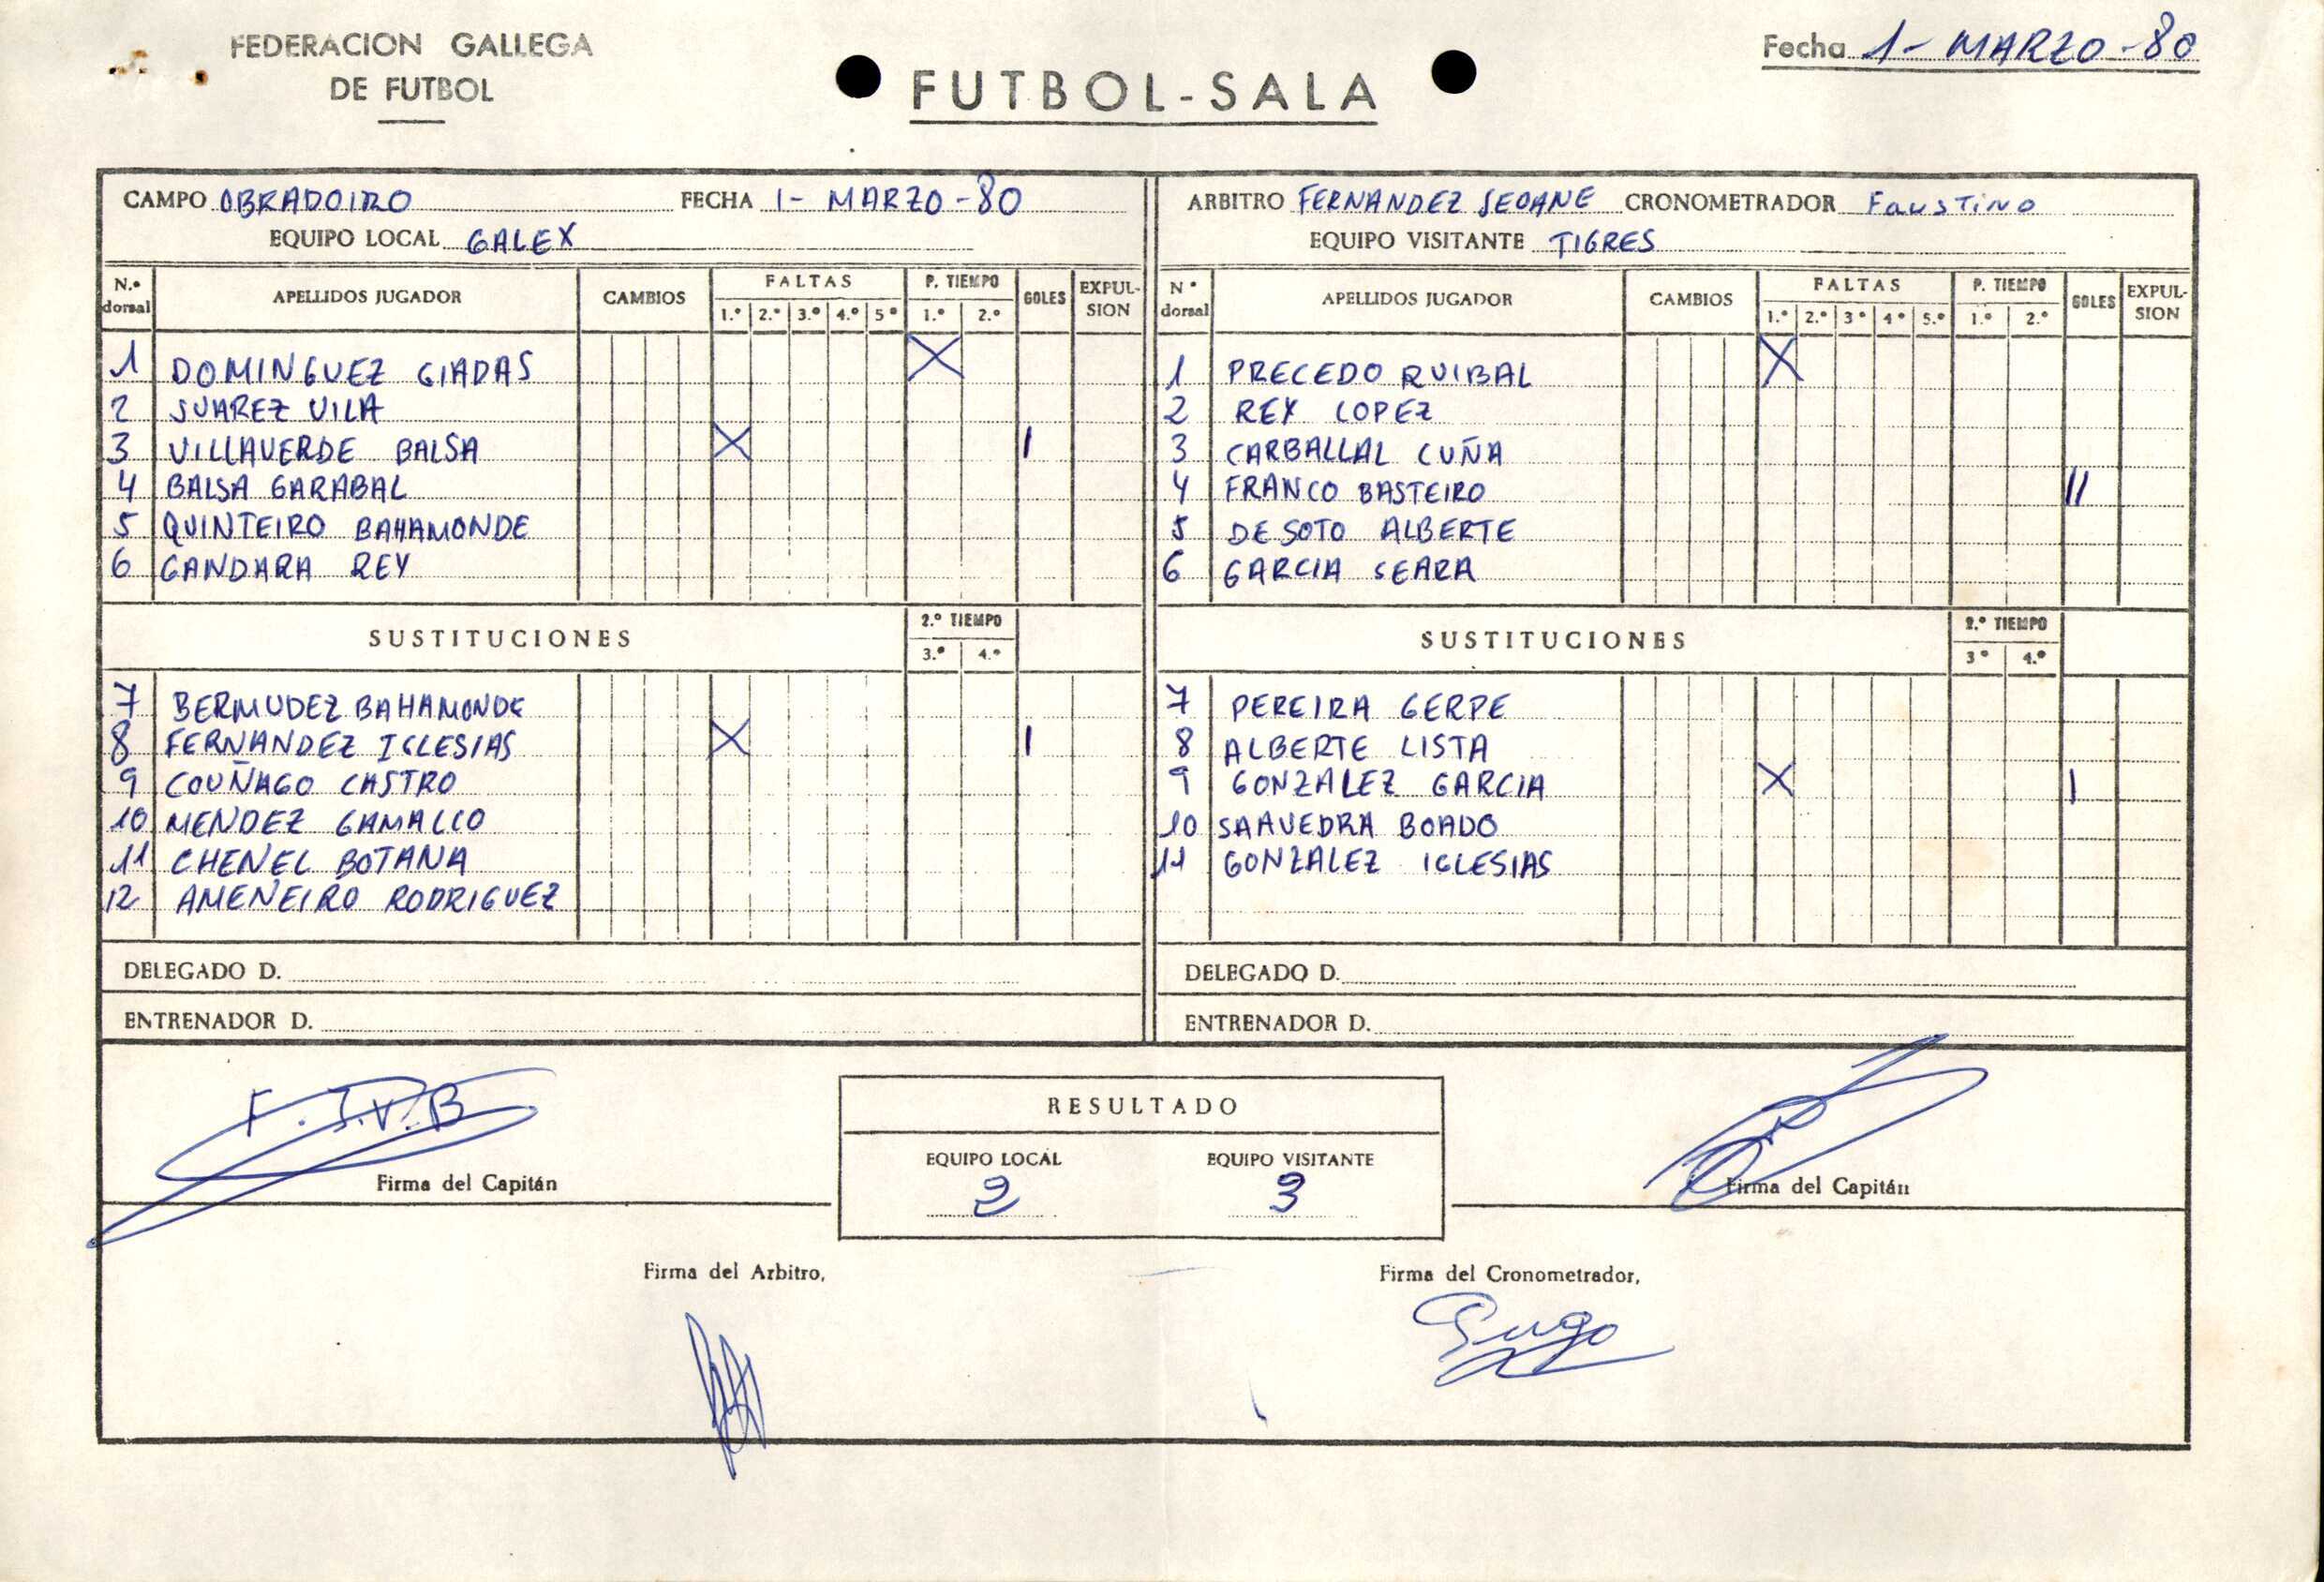 FEDERACION GALLEGA
DE FUTBOL
FUTBOL-SALA
Fecha 1- MARZO-80
CAMPO OBRADOIRO FECHA 1- MARZO-80
EQUIPO LOCAL GALEX
N.º dorsal APELLIDOS JUGADOR CAMBIOS FALTAS 1.º 2.º 3.º 4.º 5º P. TIEMPO 1.º 2.º GOLES EXPUL-SION
1 DOMINGUEZ GIADAS X
2 SUAREZ VILA
3 VILLAVERDE BALSA X I
4 BALSA GARABAL
5 QUINTEIRO BAHAMONDE
6 GANDARA REY
SUSTITUCIONES 2.º TIEMPO 3.º 4.º
7 BERMUDEZ BAHAMONDE
8 FERNANDEZ IGLESIAS X I
9 COUÑAGO CASTRO
10 MENDEZ GAMALLO
11 CHENEL BOTANA
12 AMENEIRO RODRIGUEZ
DELEGADO D.
ENTRENADOR D.
ARBITRO FERNANDEZ SEOANE CRONOMETRADOR Faustino
EQUIPO VISITANTE TIGRES
Nº dorsal APELLIDOS JUGADOR CAMBIOS FALTAS 1.º 2.º 3º 4º 5.º P. TIEMPO 1.º 2.º GOLES EXPUL-SION
1 PRECEDO RUIBAL X
2 REY LOPEZ
3 CARBALLAL CUÑA
4 FRANCO BASTEIRO II
5 DE SOTO ALBERTE
6 GARCIA SEARA
SUSTITUCIONES 2.º TIEMPO 3º 4.º
7 PEREIRA GERPE
8 ALBERTE LISTA
9 GONZALEZ GARCIA X I
10 SAAVEDRA BOADO
11 GONZALEZ IGLESIAS
DELEGADO D.
ENTRENADOR D.
F. J.V.B
Firma del Capitán
RESULTADO
EQUIPO LOCAL EQUIPO VISITANTE
2 3
Firma del Capitán
Firma del Arbitro,
Firma del Cronometrador,